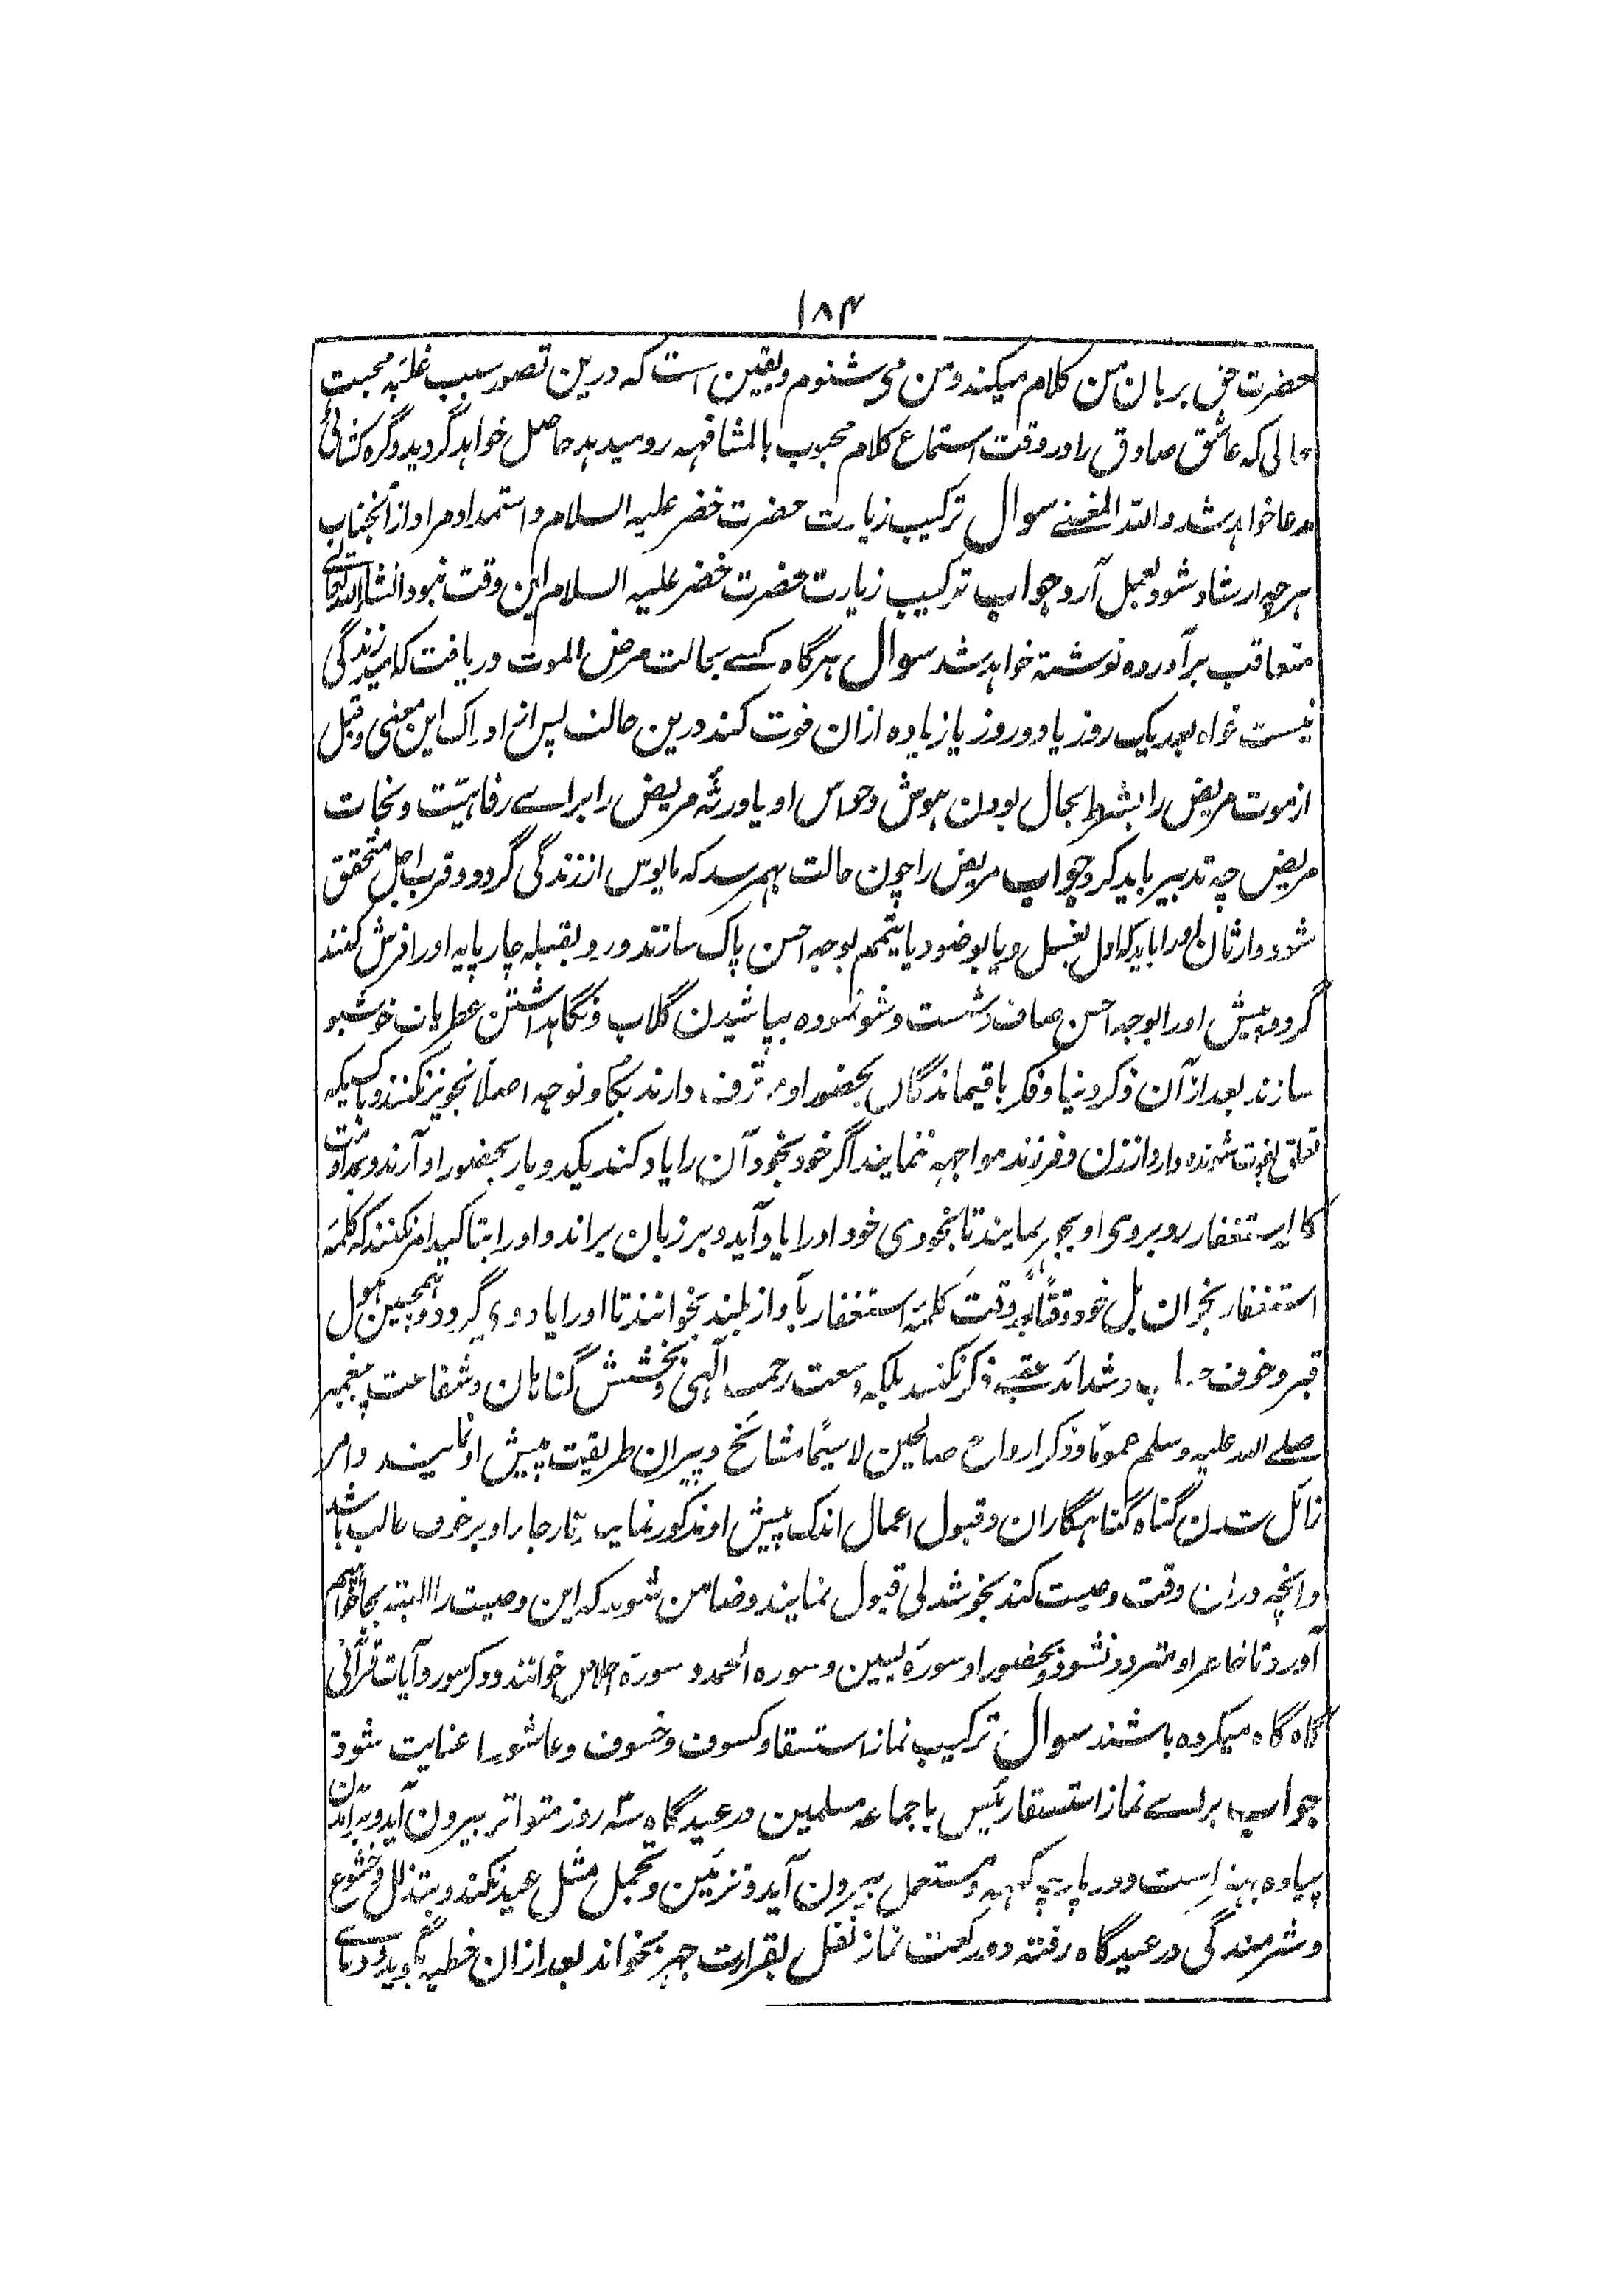 ۱۸۴
حضرت حق بر زبان من کلام میکند و من می شنوم و یقین است که درین تصور سبب غلبهٔ محبت
حالی که عاشق صادق را در وقت استماع کلام محبوب بالمشافهه رو میدهد حاصل خواهد گردید و گره کشائی
مدعا خواهد شد والله المغنی سوال ترکیب زیارت حضرت خضر علیه السلام و استمداد مراد از آنجناب
هرچه ارشاد شود بعمل آرد جواب ترکیب زیارت حضرت خضر علیه السلام این وقت نبود انشاءالله تعالی
متعاقب برآورده نوشته خواهد شد سوال هرگاه کسے بحالت مرض الموت دریافت که امید زندگی
نیست خواه بعد یک روز یا دو روز یا زیاده ازان فوت کند درین حالت پس از ادراک این معنی و قبل
از موت مریض را بشرط بحال بودن هوش و حواس او یا ورثهٔ مریض را براے رفاهیت و نجات
مریض چه تدبیر باید کرد جواب مریض را چون حالت بهم رسد که مایوس از زندگی گردد و قرب اجل متحقق
شود وارثان او را باید که اول بغسل و یا بوضو و یا تیمم بوجه احسن پاک سازند و رو بقبله چارپایه او را فرش کنند
گرد و پیش او را بوجه احسن صاف و شست و شو نموده بپاشیدن گلاب و نگاهداشتن عطریات خوشبو
سازند بعد از آن ذکر دنیا و فکر باقیماندگان بحضور او موقوف دارند بکا و نوحه اصلا تجویز نکنند و با کسیکه
تعلق داشته دارد از زن و فرزند مواجهه ننمایند اگر خود بخود آن را یاد کند یکدو بار بحضور او آرند و
کلمه استغفار روبروی او بجهر نمایند تا بخودی خود او را یاد آید و بر زبان براند و او را بتاکید امر نکنند که کلمهٔ
استغفار بخوان بل خود وقتاً فوقتاً کلمهٔ استغفار بآواز بلند بخوانند تا او را یاددهی گردد و همچنین هول
قبر و خوف و شدائد عقبی ذکر نکنند بلکه وسعت رحمت الهی و بخشش گناهان و شفاعت پیغمبر
صلے الله علیه وسلم عموماً و ذکر ارواح صالحین لاسیما مشائخ و پیران طریقت پیش او نمایند و امر
زائل شدن گناه گناهگاران و قبول اعمال اندک پیش او مذکور نمایند تا رجا را و بر خوف غالب باشد
و آنچه دران وقت وصیت کند بخوشدلی قبول نمایند و ضامن شوند که این وصیت را البته بجا خواهیم
آورد تا خاطر او متردد نشود و بحضور او سورهٔ یسین و سوره الحمد و سورهٔ اخلاص خوانند و دیگر سور و آیات قرآنی
گاه گاه میکرده باشند سوال ترکیب نماز استسقا و کسوف و خسوف و عاشورا عنایت شود
جواب براے نماز استسقا رئیس با جماعه مسلمین در عیدگاه سه روز متواتر بیرون آید و
پیاده پا در پارچه کهنه و مستعمل بیرون آید و تزئین و تجمل مثل عید نکند و بتذلل و خشوع
و شرمندگی در عیدگاه رفته دو رکعت نماز نفل بقرارت جهر بخواند بعد ازان خطبه بگوید و دعاے